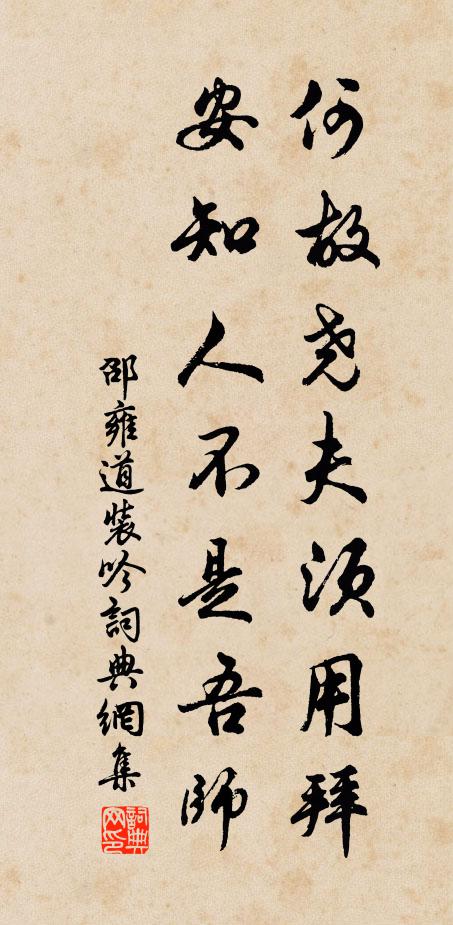 何故尧夫须用拜
安知人不是吾師
邵雍道裝吟詞典網集
詞典网印